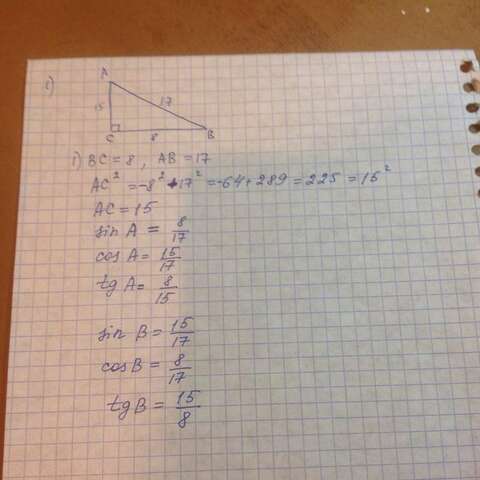 1)
A
15
17
C
8
B
1) BC = 8, AB = 17
AC² = -8² + 17² = -64 + 289 = 225 = 15²
AC = 15
sin A = 8/17
cos A = 15/17
tg A = 8/15
sin B = 15/17
cos B = 8/17
tg B = 15/8